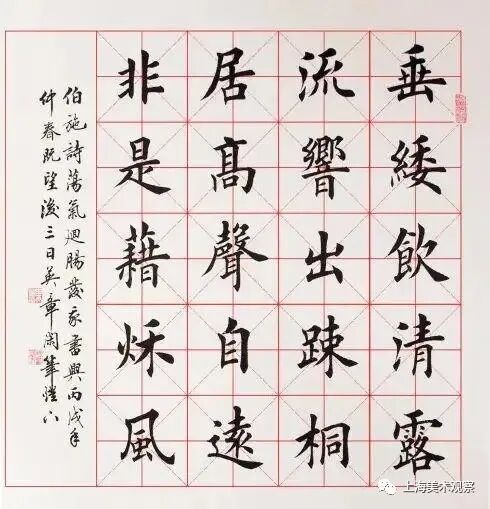 垂緌飲清露
流響出踈桐
居高聲自遠
非是藉秌風
伯施詩蕩氣迴腸發永書興丙戌年
仲春既望後三日英章閑筆愷下
上海美术观察